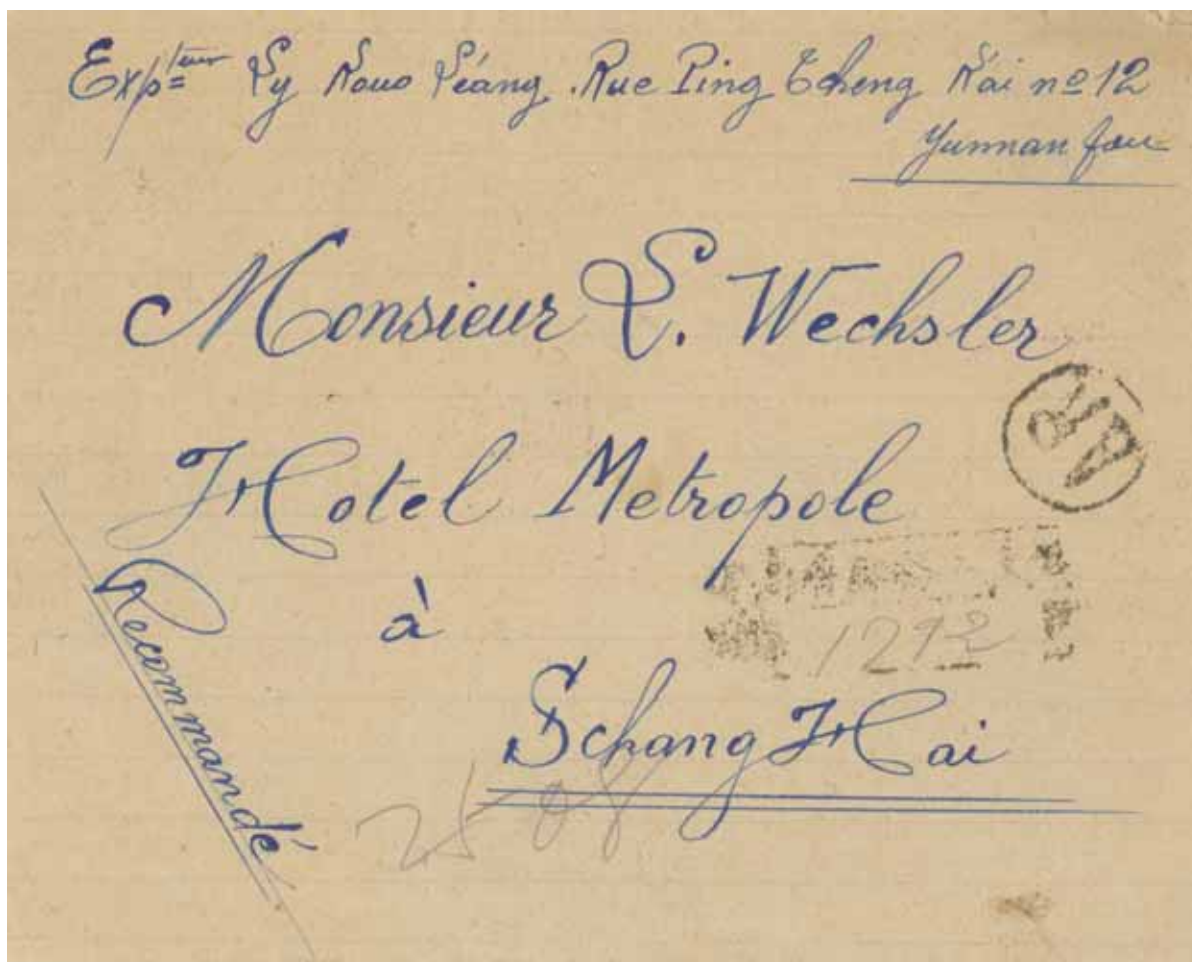 Expteur Ly Kouo Léang. Rue Ping Tcheng Kai no 12
Yunnan fou
Monsieur L. Wechsler
Hotel Metropole
à
Schang Haï
Recommandé
AR
1292
2508